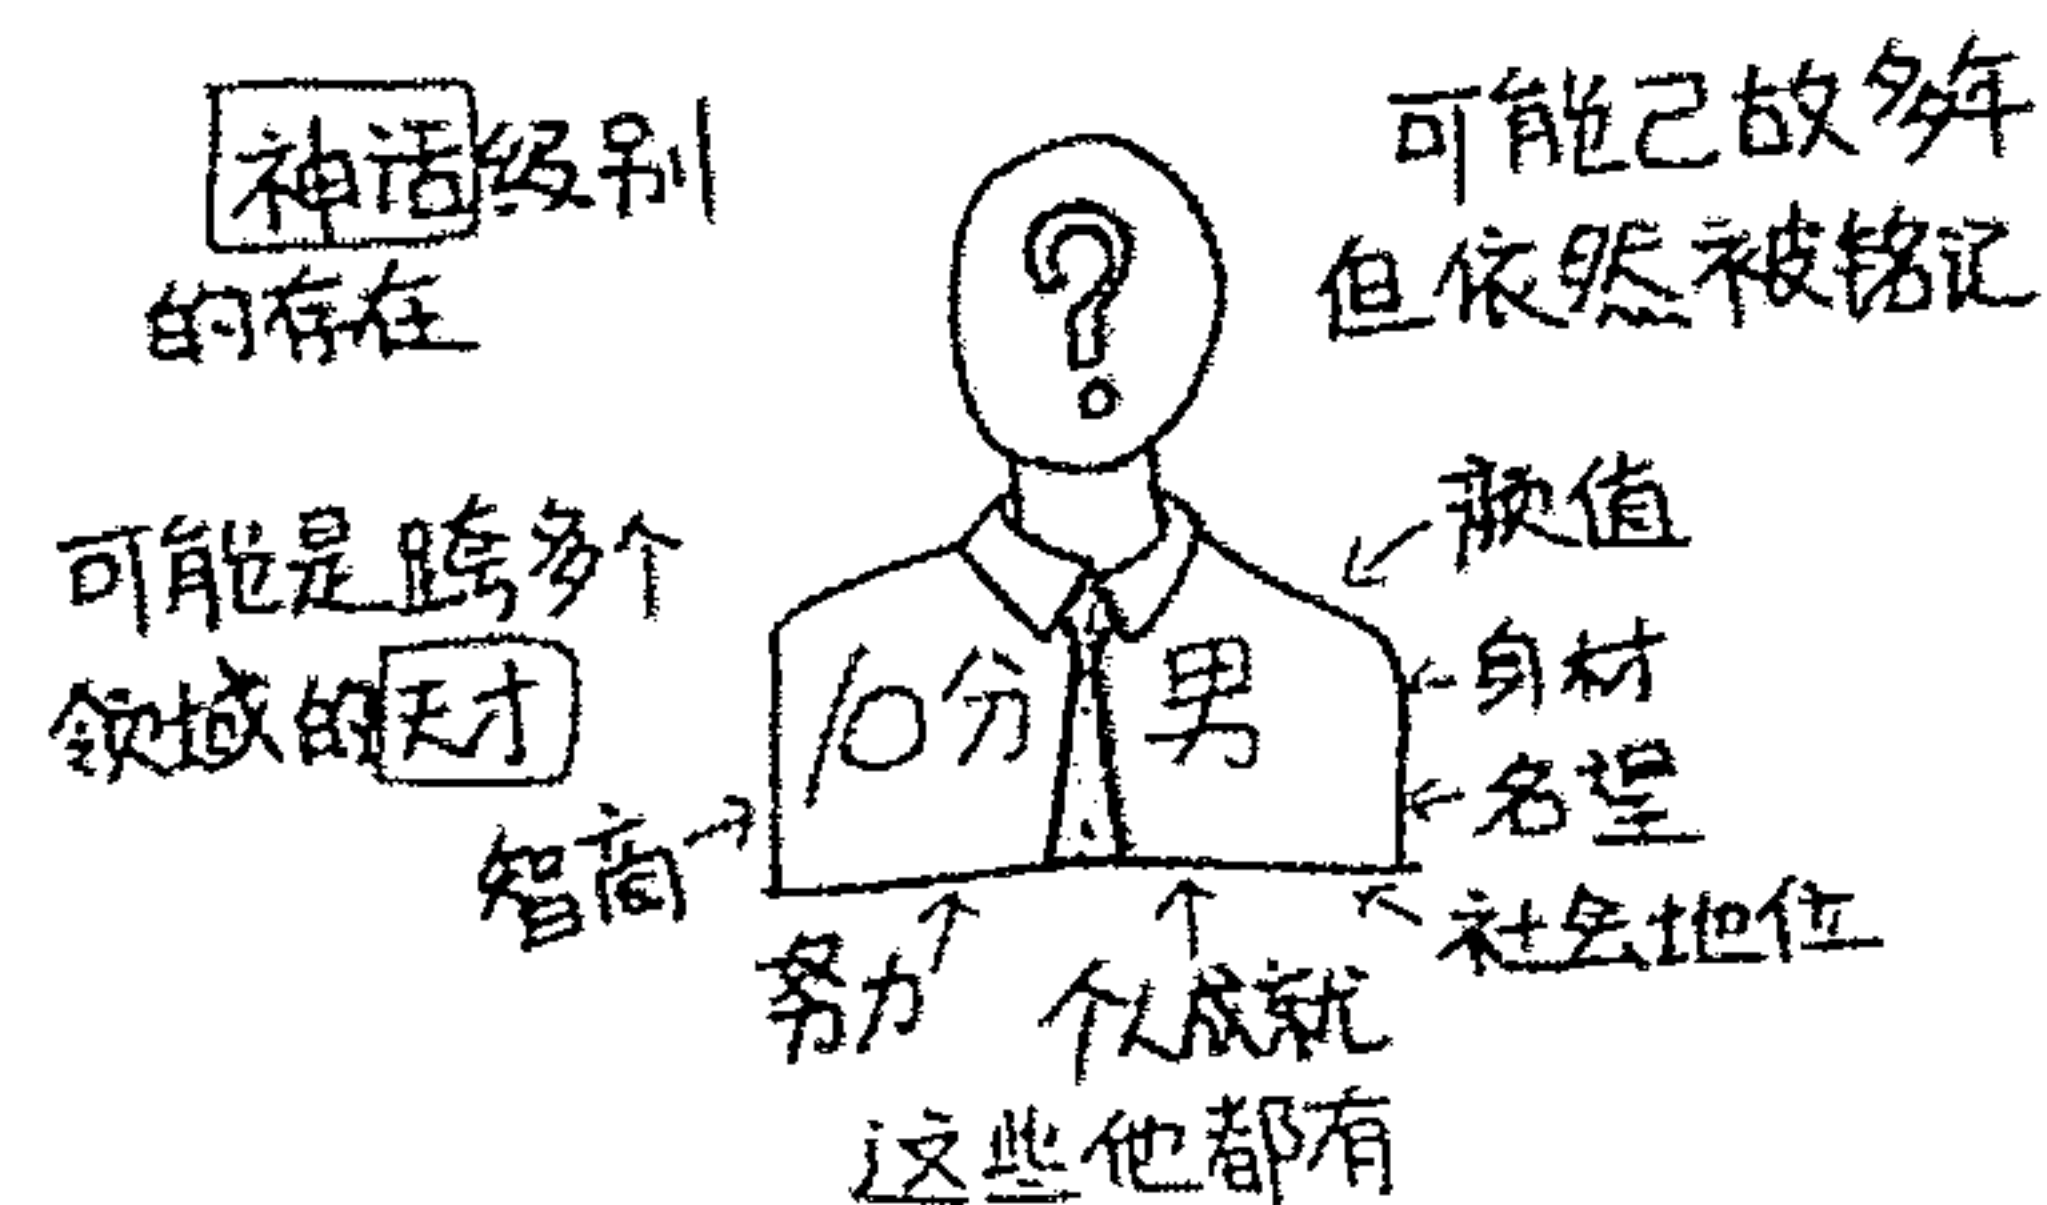 神话级别
的存在
可能已故多年
但依然被铭记
?
可能是跨多个
领域的天才
颜值
身材
名望
社会地位
10分 男
智商
努力
个人成就
这些他都有